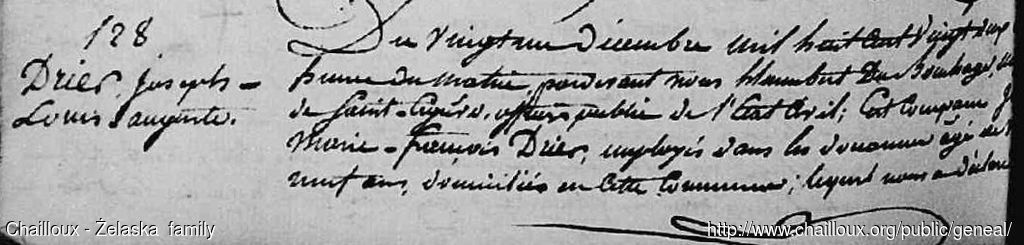 128
Drier, joseph-
Louis-auguste.
Du vingt un décembre mil huit cent vingt deux
heure du matin, pardevant nous Humbert Du Bouchage,
de Saint-, officier public de l'Etat Civil; Est Comparu
Marie-françois Drier, employés dans les douannes agé de
neuf ans, domiciliés en Cette Commune; lequel nous a déclaré
Chailloux - Żelaska family
http://www.chailloux.org/public/geneal/